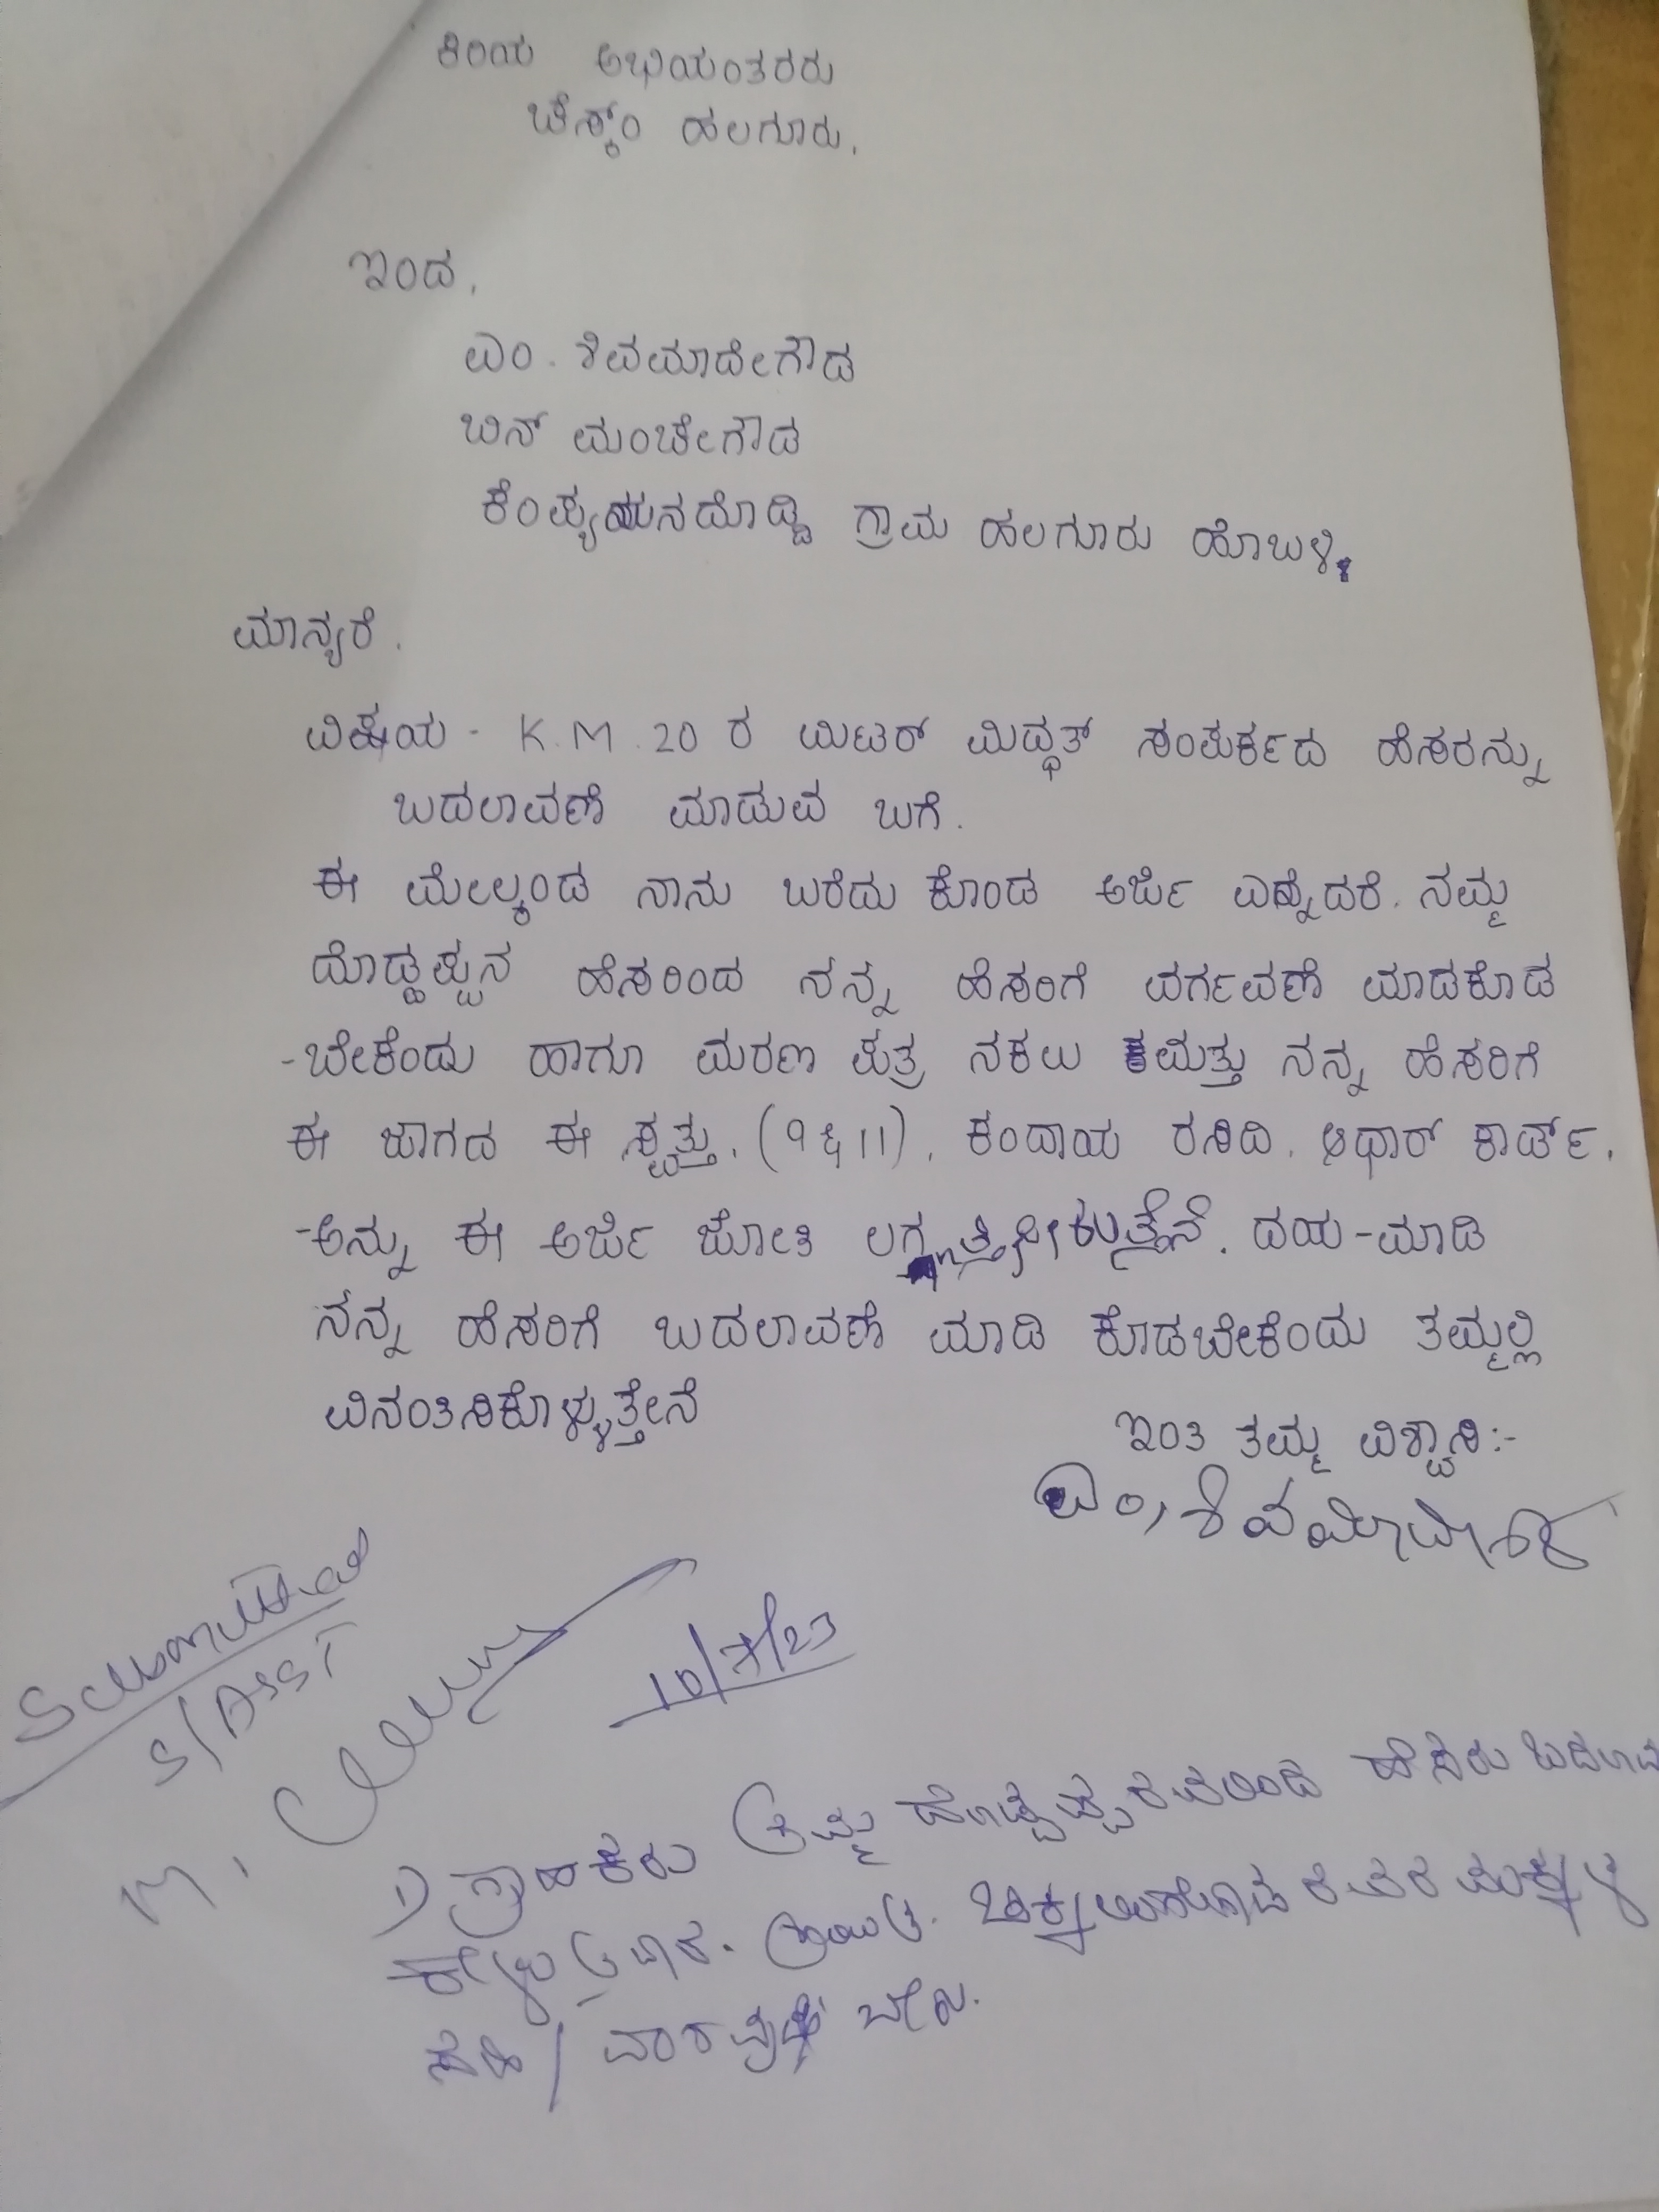 ಕಿರಿಯ ಅಭಿಯಂತರರು
ಚೆಸ್ಕಾಂ ಹಲಗೂರು.
ಇಂದ,
ಎಂ. ಶಿವಮಾದೇಗೌಡ
ಬಿನ್ ಮಂಚೇಗೌಡ
ಕೆಂಪಯ್ಯನದೊಡ್ಡಿ ಗ್ರಾಮ ಹಲಗೂರು ಹೋಬಳಿ.
ಮಾನ್ಯರೆ.
ವಿಷಯ - K.M.20 ರ ಮಿಟರ್ ಮಿದ್ಧತ್ ಸಂಪರ್ಕದ ಹೆಸರನ್ನು
ಬದಲಾವಣೆ ಮಾಡುವ ಬಗೆ.
ಈ ಮೇಲ್ಕಂಡ ನಾನು ಬರೆದು ಕೊಂಡ ಅರ್ಜಿ ಎನ್ನೆದರೆ. ನಮ್ಮ
ದೊಡ್ಡಪ್ಪನ ಹೆಸರಿಂದ ನನ್ನ ಹೆಸರಿಗೆ ವರ್ಗವಣೆ ಮಾಡಕೊಡ
-ಬೇಕೆಂದು ಹಾಗೂ ಮರಣ ಪತ್ರ ನಕಲು ಮತ್ತು ನನ್ನ ಹೆಸರಿಗೆ
ಈ ಜಾಗದ ಈ ಸ್ವತ್ತು. (9 & 11). ಕಂದಾಯ ರಸಿದಿ. ಆಧಾರ್ ಕಾರ್ಡ್.
-ಅನ್ನು ಈ ಅರ್ಜಿ ಜೋತಿ . ದಯ-ಮಾಡಿ
ನನ್ನ ಹೆಸರಿಗೆ ಬದಲಾವಣೆ ಮಾಡಿ ಕೊಡಬೇಕೆಂದು ತಮ್ಮಲ್ಲಿ
ವಿನಂತಿಸಿಕೊಳ್ಳುತ್ತೇನೆ
ಇಂತಿ ತಮ್ಮ ವಿಶ್ವಾಸಿ:-
ಎಂ, ಶಿವಮಾದೇಗೌಡ
Submitted
S/ASST
10/7/23
1) ಗ್ರಾಹಕರು ತಮ್ಮ ಹೆಸರು